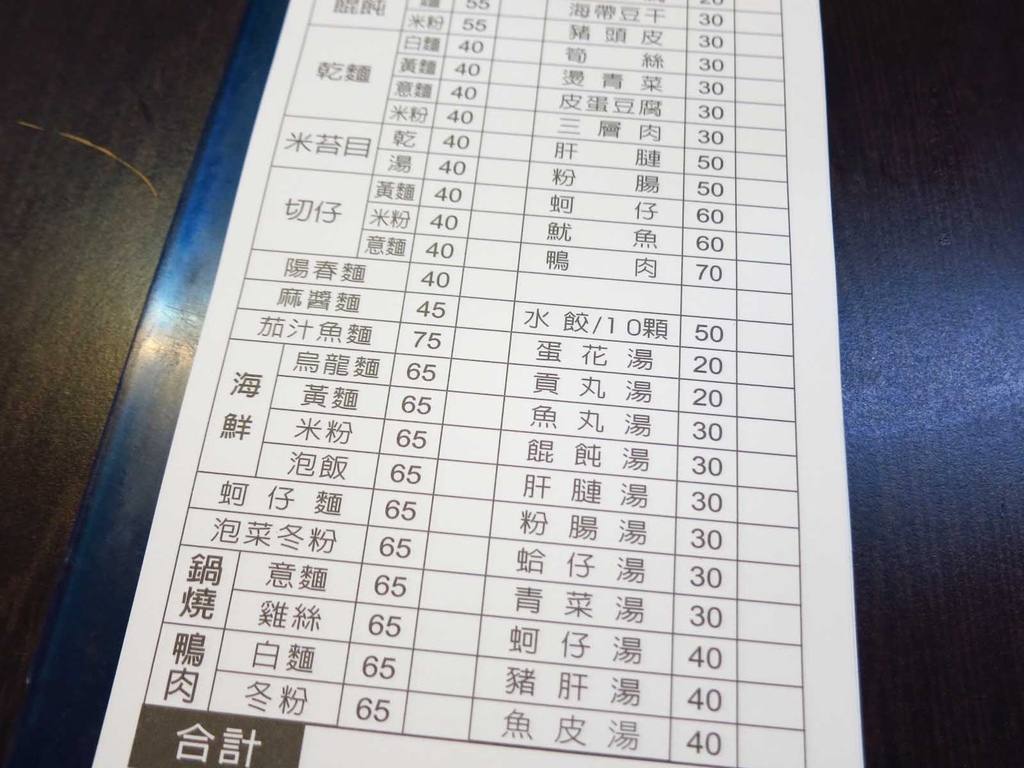 餛飩 麵 55
20
米粉 55 海帶豆干 30
乾麵 白麵 40 豬頭皮 30
黃麵 40 筍絲 30
意麵 40 燙青菜 30
米粉 40 皮蛋豆腐 30
米苔目 乾 40 三層肉 30
湯 40 肝腱 50
切仔 黃麵 40 粉腸 50
米粉 40 蚵仔 60
意麵 40 魷魚 60
陽春麵 40 鴨肉 70
麻醬麵 45
茄汁魚麵 75 水餃/10顆 50
海鮮 烏龍麵 65 蛋花湯 20
黃麵 65 貢丸湯 20
米粉 65 魚丸湯 30
泡飯 65 餛飩湯 30
蚵仔麵 65 肝腱湯 30
泡菜冬粉 65 粉腸湯 30
鍋燒 意麵 65 蛤仔湯 30
雞絲 65 青菜湯 30
鴨肉 白麵 65 蚵仔湯 40
冬粉 65 豬肝湯 40
合計 魚皮湯 40